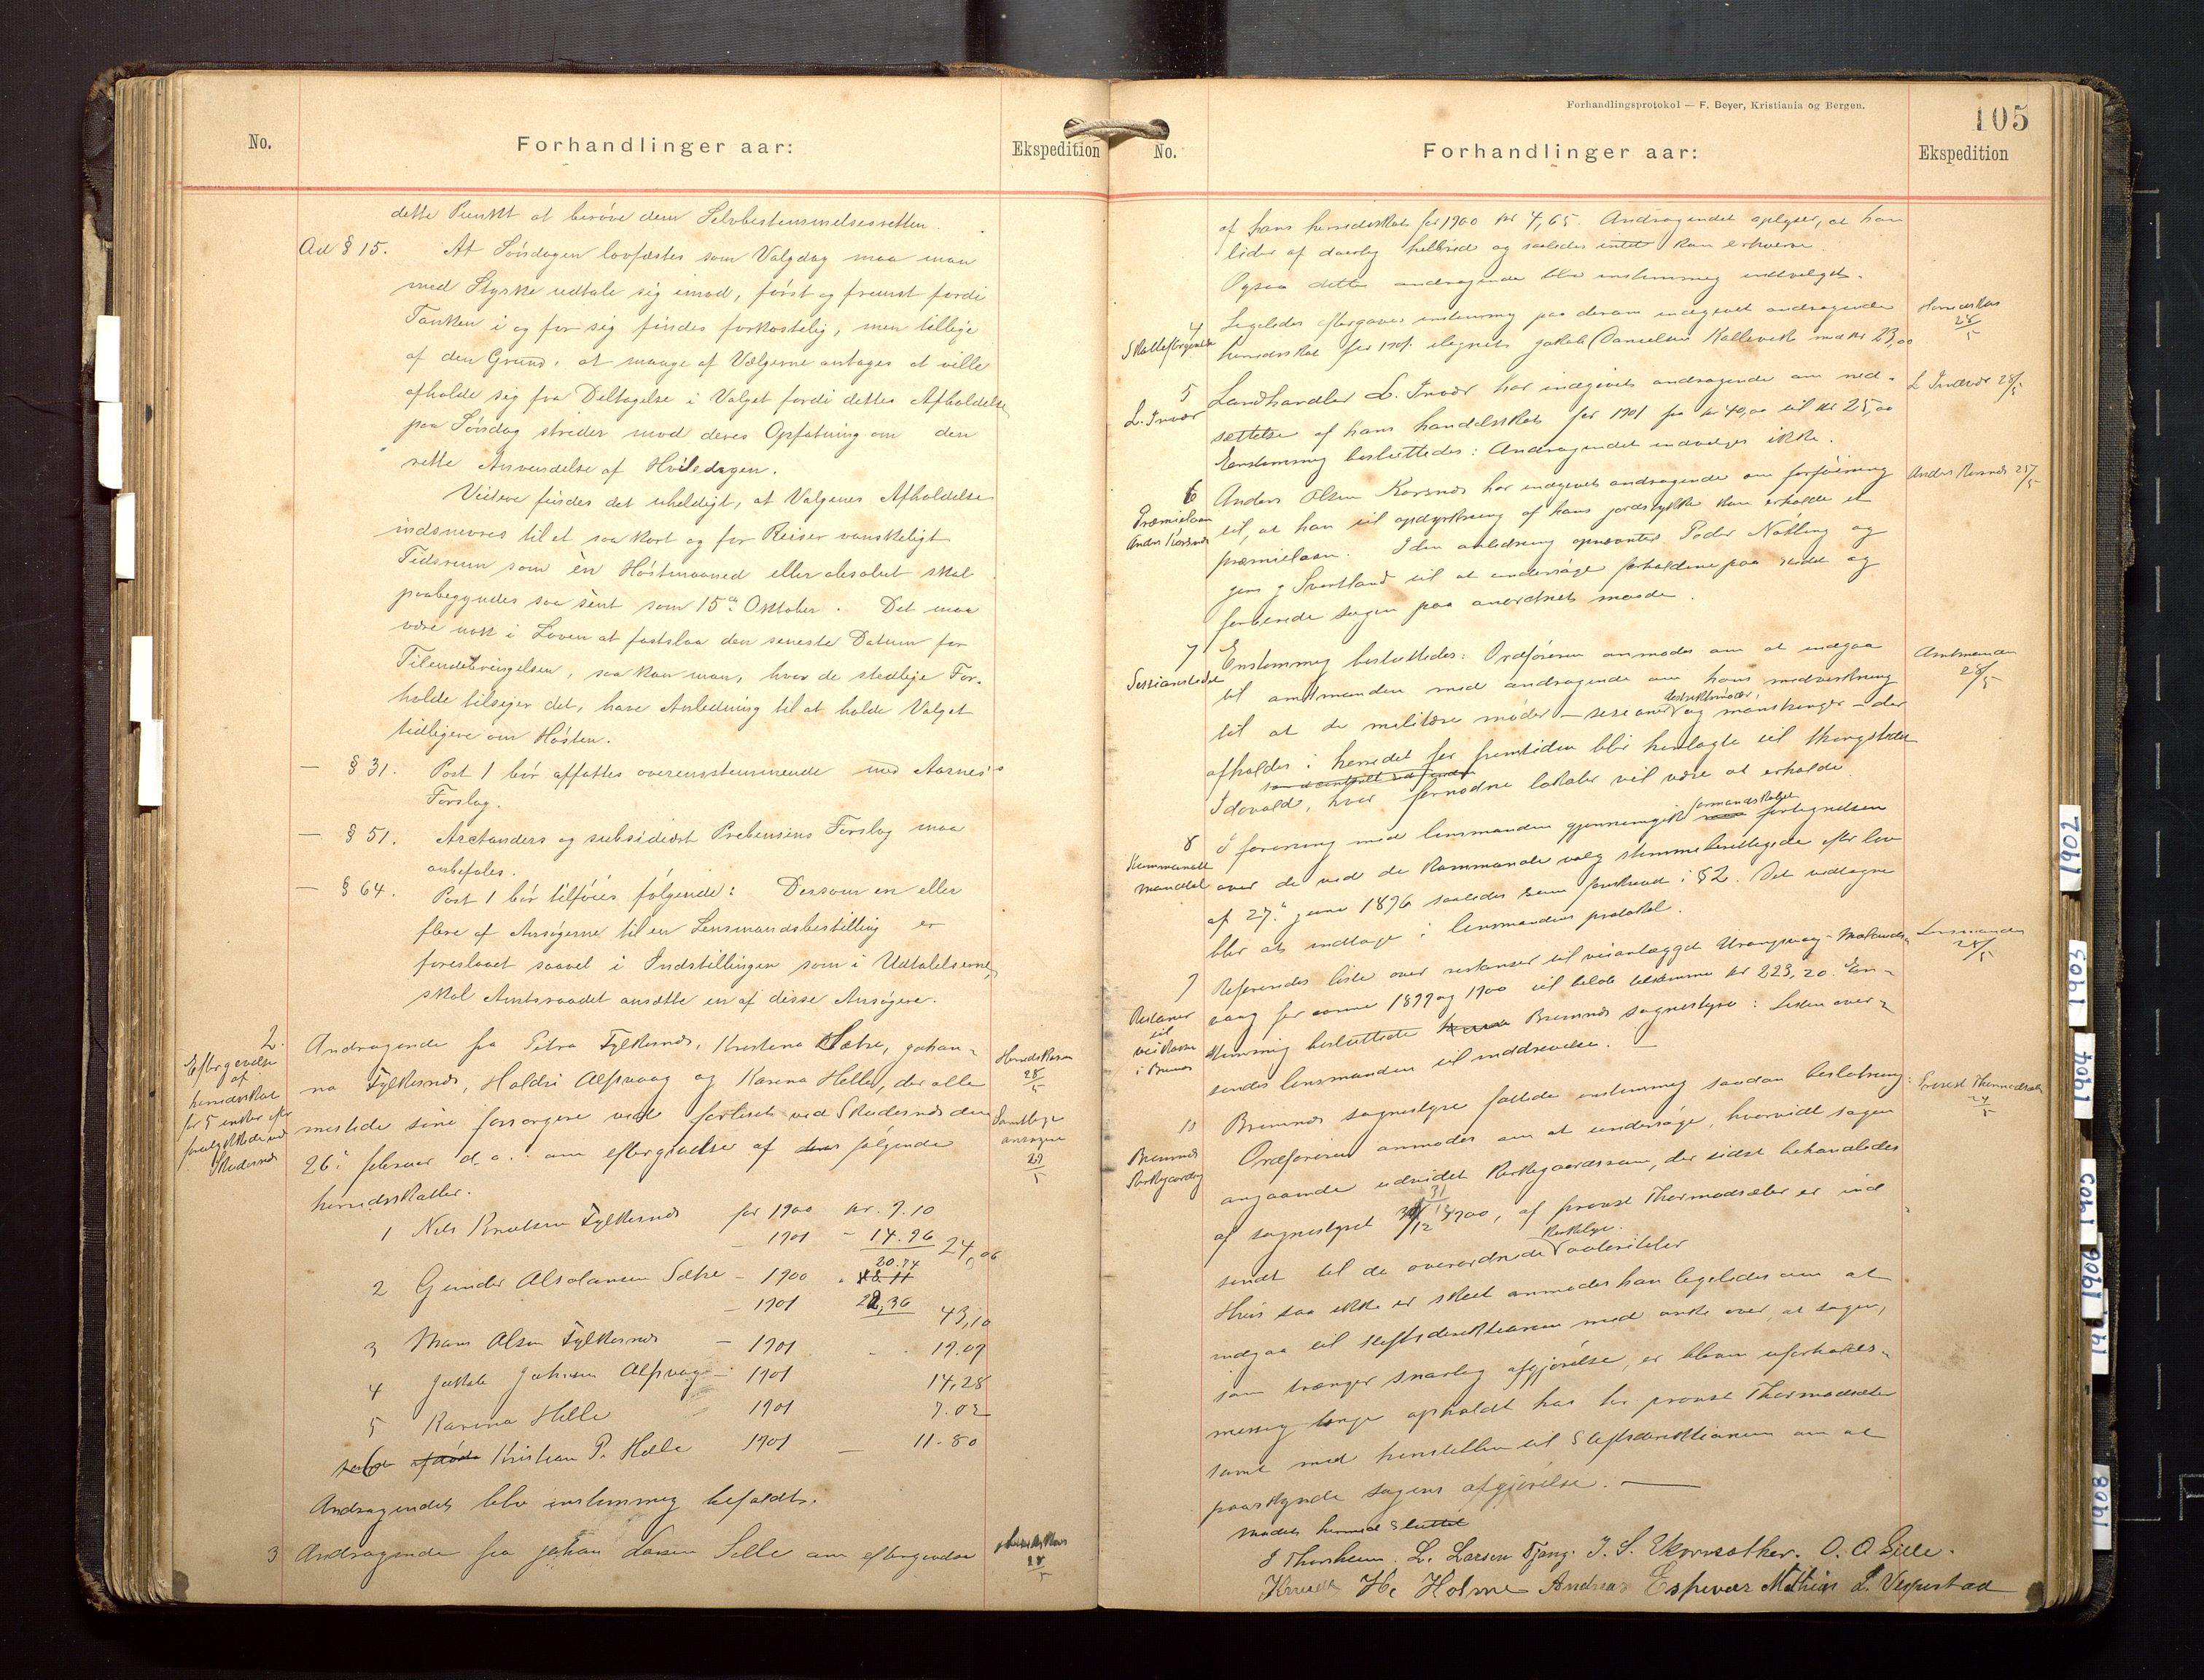 No.
Forhandlinger aar:
Ekspedition
dette Punkt at berøve dem Selvbestemmelsesretten.
Ad § 15. At Søndagen lovfæstes som Valgdag maa man
med Styrke udtale sig imod, først og fremst fordi
Tanken i og for sig findes forkastelig, men tillige
af den Grund, at mange af Vælgerne antages at ville
afholde sig fra Deltagelse i Valget fordi dettes Afholdelse
paa Søndag strider mod deres Opfatning om den
rette Anvendelse af Hviledagen.
Videre findes det uheldigt, at Valgenes Afholdelse
indsnevres til et saa kort og for Reiser vanskeligt
Tidsrum som èn Høstmaaned eller absolut skal
paabegyndes saa sent som 15de Oktober. Det maa
være nok i Loven at fastslaa den seneste Datum for
Tilendebringelsen, saa kan man, hvor de stedlige For-
holde tilsiger det, have Anledning til at holde Valget
tidligere om Høsten.
— § 31. Post 1 bør affattes overensstemmende med Aarnes's
Forslag.
— § 51. Arctanders og subsidiært Prebensens Forslag maa
anbefales.
— § 64. Post 1 bør tilføies følgende: Dersom en eller
flere af Ansøgerne til en Lensmandsbestilling er
foreslaaet saavel i Indstillingen som i Udtalelserne,
skal Amtsraadet ansætte en af disse Ansøgere.
2.
Eftergivelse
af
herredsskat
for 5 enker efter
forulykkede ved
Skudesnes
Andragende fra Petra Fylkesnes, Kristina Sætre, Johan-
na Fylkesnes, Haldri Alfsvaag og Karina Helle, der alle
mistede sine forsørgere ved forliset ved Skudesnes den
26de februar d. a. om eftergivelse af følgende
herredsskatter.
Herredskassen
28/5
Samtlige
ansøgere
29/5
1 Nils Knutsen Fylkesnes for 1900 kr. 9.10
– 1901 – 14.96 24,06
2 Gunder Sætre – 1900 20.74
– 1901 22,36 43,10
3 Mons Olsen Fylkesnes – 1901 19.09
4 Jakob Johnsen Alfsvaag – 1901 14,28
5 Karina Helle 1901 7.02
6 Kristian P. Helle 1901 — 11.80
Andragendet blev enstemmig bifaldt.
3 Andragende fra Johan Larsen Selle om eftergivelse
Herredskassen
28/5
Forhandlingsprotokol — F. Beyer, Kristiania og Bergen.
105
No.
Forhandlinger aar:
Ekspedition
af hans herredsskat for 1900 kr 4,65. Andragendet oplyser, at han
lider af daarlig helbred og saaledes intet kan erhverve.
Ogsaa dette andragende blev enstemmig indvilget.
4
Skatteeftergivelse
Ligeledes eftergaves enstemmig paa derom indgivet andragende
herredsskat for 1901 ilignet Jakob Danielsen Kallevik med kr 23,00
Herredskas
28/5
5
L. Innvær
Landhandler L. Innvær har indgivet andragende om ned-
sættelse af hans handelsskat for 1901 fra kr 40,00 til kr 25,00
Enstemmig besluttedes: Andragendet indvilges ikke.
L Innvær 28/5
6
Præmielaan
Anders Korsnes
Anders Olsen Korsnes har indgivet andragende om forføining
til, at han til opdyrkning af hans jordstykke kan erholde et
præmielaan. I den anledning opnævntes Peder Nøtling og
Jens J Svortland til at undersøge forholdene paa stedet og
forberede sagen paa anordnet maade.
Anders Korsnes 28/5
7
Sessionsstedet
Enstemmig besluttedes: Ordføreren anmodes om at indgaa
til amtmanden med andragende om hans medvirkning
til at de militære møder – sesioner, distriktsmøder, og mønstringer – der
afholdes i herredet for fremtiden blir henlagte til thingstedet
Idevold, hvor fornødne lokaler vil være at erholde.
Amtmanden
28/5
8
Kommandal
mandtal
I forening med lensmanden gjennemgik formandskabet fortegnelsen
over de ved de kommende valg stemmeberettigede efter lov
af 27de juni 1896 saaledes som foreskrevet i § 2. Det vedtagne
blir at indtage i lensmandens protokol.
9
Restancer
til
veikassen
i Bremnes
Refereredes liste over restanser til veianlægget Urangsvaag–Mokster-
vaag for aarne 1899 og 1900 til beløb tilsamme kr 223,20. En-
stemmig besluttede Bremnes sognestyre: Listen over-
sendes lensmanden til inddrivelse. —
Lensmanden
28/5
10
Bremnes
Kirkegaard
Bremnes sognestyre fattede enstemmig saadan beslutning:
Ordføreren anmodes om at undersøge, hvorvidt sagen
angaaende udvidet Kirkegaardsrum, der sidst behandledes
af sognestyret 31/12 1900, af provst Thormodsæter er ind
sendt til de overordnede kirkelige autoriteter.
Hvis saa ikke er skeet anmodes han ligeledes om at
indgaa til stiftsdirektionen med anke over, at sagen,
som trænger snarlig afgjørelse, er bleven uforholds-
mæssig længe opholdt hos hr provst Thormodsæter
samt med henstillen til Stiftsdirektionen om at
paaskynde sagens afgjørelse. —
Provst Thormodsæter
29/5
Mødet hermed sluttet
J Thorsheim. L. Larsen Tjong. J. S. Ekornsæther. O. O Gille.
Knud H. Holme Andreas Espevær Mathias L. Vespestad
1902
1903
1904
1905
1906
1908